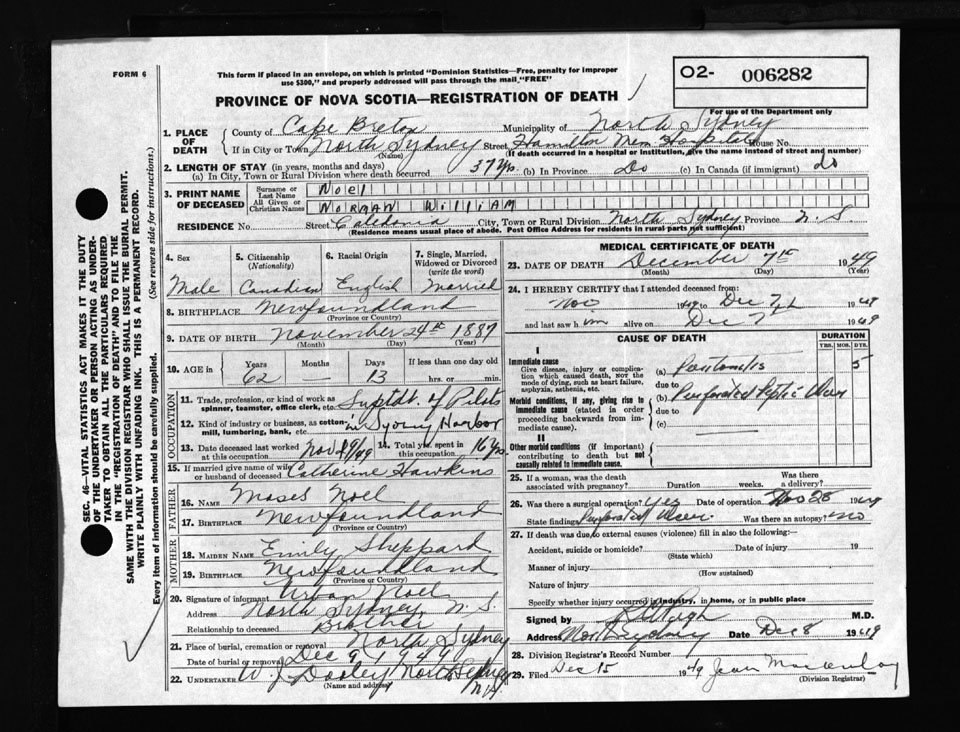 FORM 6
This form if placed in an envelope, on which is printed "Dominion Statistics—Free, penalty for improper
use $300," and properly addressed will pass through the mail "FREE"
O2- 006282
PROVINCE OF NOVA SCOTIA—REGISTRATION OF DEATH
For use of the Department only
1. PLACE OF DEATH
County of Cape Breton Municipality of North Sydney
If in City or Town North Sydney Street Hamilton Mem Hospital House No.
(Name) (If death occurred in a hospital or institution, give the name instead of street and number)
2. LENGTH OF STAY (in years, months and days)
(a) In City, Town or Rural Division where death occurred 37 yrs. (b) In Province Do (c) In Canada (if immigrant) do
3. PRINT NAME OF DECEASED
Surname or Last Name Noel
All Given or Christian Names NORMAN WILLIAM
RESIDENCE No. Street Caledonia City, Town or Rural Division North Sydney Province N.S.
(Residence means usual place of abode. Post Office Address for residents in rural parts not sufficient)
4. Sex Male
5. Citizenship (Nationality) Canadian
6. Racial Origin English
7. Single, Married, Widowed or Divorced (write the word) Married
8. BIRTHPLACE Newfoundland
(Province or Country)
9. DATE OF BIRTH November 24th 1887
(Month) (Day) (Year)
10. AGE in Years Months Days If less than one day old
62 — 13 hrs. or min.
OCCUPATION
11. Trade, profession, or kind of work as spinner, teamster, office clerk, etc. Suptdt. of Pilots
12. Kind of industry or business, as cotton-mill, lumbering, bank, etc. in Sydney Harbor
13. Date deceased last worked at this occupation Nov 19/49 14. Total yrs. spent in this occupation 16 yrs
15. If married give name of wife or husband of deceased Catherine Hawkins
FATHER
16. NAME Moses Noel
17. BIRTHPLACE Newfoundland
(Province or Country)
MOTHER
18. MAIDEN NAME Emily Sheppard
19. BIRTHPLACE Newfoundland
(Province or Country)
20. Signature of informant Urban Noel
Address North Sydney, N.S.
Relationship to deceased Brother
21. Place of burial, cremation or removal North Sydney
Date of burial or removal Dec 9 1949
22. UNDERTAKER W. J. Dooley North Sydney N.S.
(Name and address)
MEDICAL CERTIFICATE OF DEATH
23. DATE OF DEATH December 7th 1949
(Month) (Day) (Year)
24. I HEREBY CERTIFY that I attended deceased from:
Nov 1949 to Dec 7th 1949
and last saw him alive on Dec 7 1949
CAUSE OF DEATH
DURATION
YRS. MOS. DYS.
I
Immediate cause
Give disease, injury or complication which caused death, not the mode of dying, such as heart failure, asphyxia, asthenia, etc.
(a) Peritonitis 5
due to
Morbid conditions, if any, giving rise to immediate cause (stated in order proceeding backwards from immediate cause).
(b) Perforated Peptic Ulcer
due to
(c)
II
Other morbid conditions (if important) contributing to death but not causally related to immediate cause.
25. If a woman, was the death associated with pregnancy? Duration weeks. Was there a delivery?
26. Was there a surgical operation? Yes Date of operation Nov 28 1949
State findings Perforated Ulcer. Was there an autopsy? no
27. If death was due to external causes (violence) fill in also the following:
Accident, suicide or homicide? Date of injury 19
(State which)
Manner of injury
(How sustained)
Nature of injury
Specify whether injury occurred in industry, in home, or in public place
Signed by M.D.
Address North Sydney Date Dec 8 1949
28. Division Registrar's Record Number
29. Filed Dec 15 1949 Jean
(Division Registrar)
SEC. 46—VITAL STATISTICS ACT MAKES IT THE DUTY
OF THE UNDERTAKER OR PERSON ACTING AS UNDER-
TAKER TO OBTAIN ALL THE PARTICULARS REQUIRED
IN THE "REGISTRATION OF DEATH" AND TO FILE THE
SAME WITH THE DIVISION REGISTRAR WHO SHALL ISSUE THE BURIAL PERMIT.
WRITE PLAINLY WITH UNFADING INK. THIS IS A PERMANENT RECORD.
Every item of information should be carefully supplied. (See reverse side for instructions.)